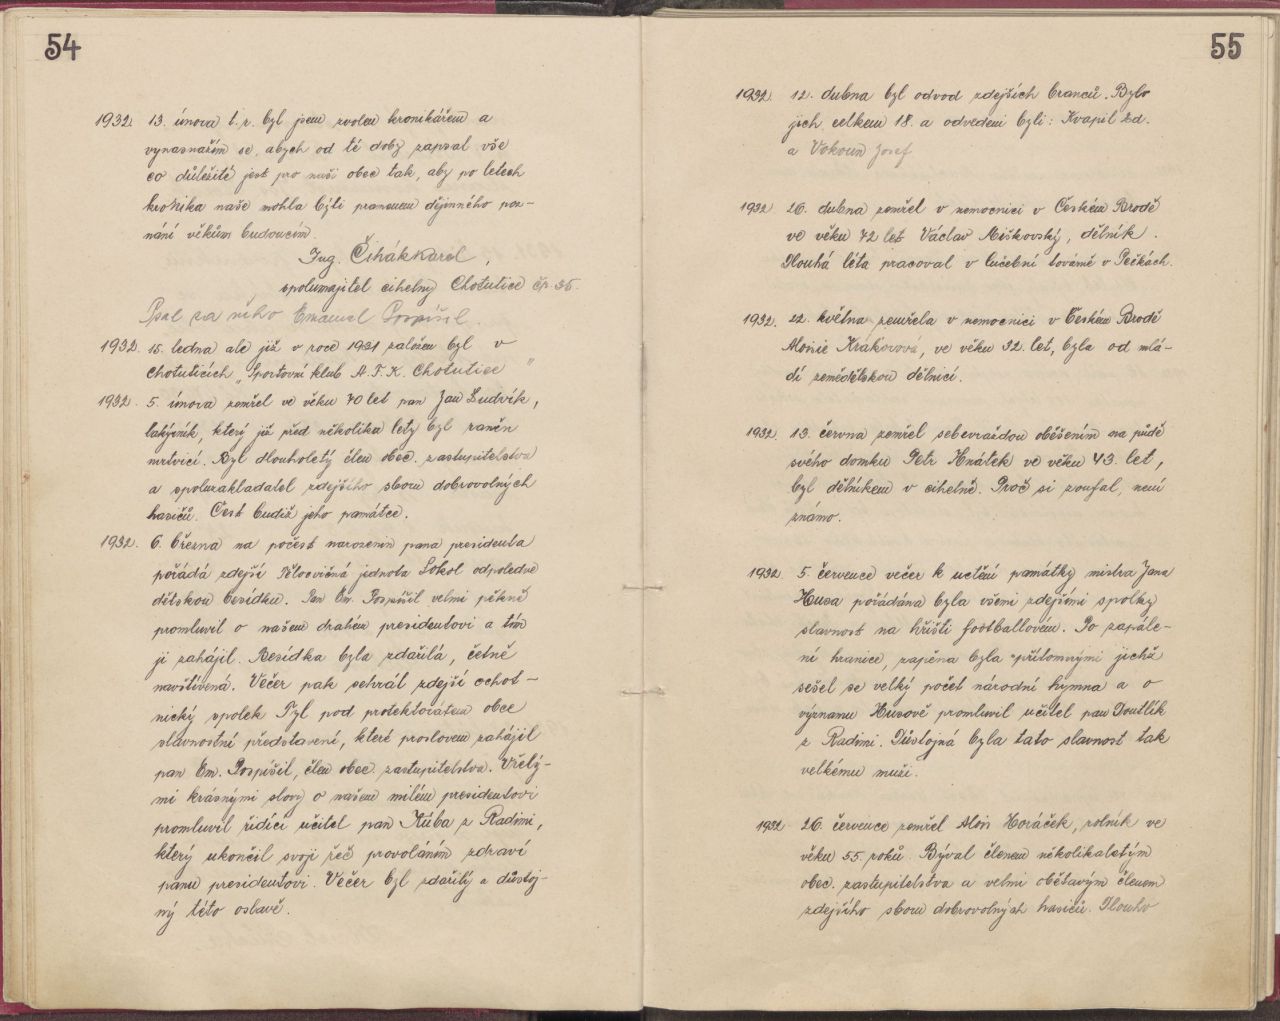 54
1932. 13. února t. r. byl jsem zvolen kronikářem a
vynasnažím se, abych od té doby zapsal vše
co důležité jest pro naši obec tak, aby po letech
kronika naše mohla býti pramenem dějinného poz-
nání věkům budoucím.
Ing. Čihák Karel,
spolumajitel cihelny Chotutice čp 35.
Psal za něho Emanuel Pospíšil.
1932. 15. ledna ale již v roce 1931 založen byl v
Chotuticích „Sportovní klub A. F. K. Chotutice"
1932. 5. února zemřel ve věku 70 let pan Jan Ludvík,
lahýrník, který již před několika lety byl raněn
mrtvicí. Byl dlouholetý člen obec. zastupitelstva
a spoluzakladatel zdejšího sboru dobrovolných
hasičů. Čest budiž jeho památce.
1932. 6. března na počest narozenin pana presidenta
pořádá zdejší Tělocvičná jednota Sokol odpoledne
dětskou besídku. Pan Em. Pospíšil velmi pěkně
promluvil o našem drahém presidentovi a tím
ji zahájil. Besídka byla zdařilá, četně
navštívená. Večer pak sehrál zdejší ochot-
nický spolek Tyl pod protektorátem obce
slavnostní představení, které proslovem zahájil
pan Em. Pospíšil, člen obec. zastupitelstva. Vřelý-
mi krásnými slovy o našem milém presidentovi
promluvil řídící učitel pan Kůba z Radimi,
který ukončil svoji řeč provoláním zdraví
panu presidentovi. Večer byl zdařilý a důstoj-
ný této oslavě.
55
1932. 12. dubna byl odvod zdejších branců. Bylo
jich celkem 18. a odvedeni byli: Kvapil Zd.
a Vokoun Josef
1932 26. dubna zemřel v nemocnici v Českém Brodě
ve věku 72 let Václav Miškovský, dělník.
Dlouhá léta pracoval v lučební továrně v Pečkách.
1932. 22. května zemřela v nemocnici v Českém Brodě
Aloisie Krákorová, ve věku 32. let, byla od mlá-
dí zemědělskou dělnicí.
1932. 13. června zemřel sebevraždou oběšením na půdě
svého domku Petr Hnátek ve věku 43. let,
byl dělníkem v cihelně. Proč si zoufal, není
známo.
1932 5. července večer k uctění památky mistra Jana
Husa pořádána byla všemi zdejšími spolky
slavnost na hřišti footballovém. Po zapále-
ní hranice, zapěna byla přítomnými jichž
sešel se velký počet národní hymna a o
významu Husově promluvil učitel pan Doutlík
z Radimi. Důstojná byla tato slavnost tak
velkému muži.
1932 26. července zemřel Alois Horáček, rolník ve
věku 55. roků. Býval členem několikaletým
obec. zastupitelstva a velmi obětavým členem
zdejšího sboru dobrovolných hasičů. Dlouho